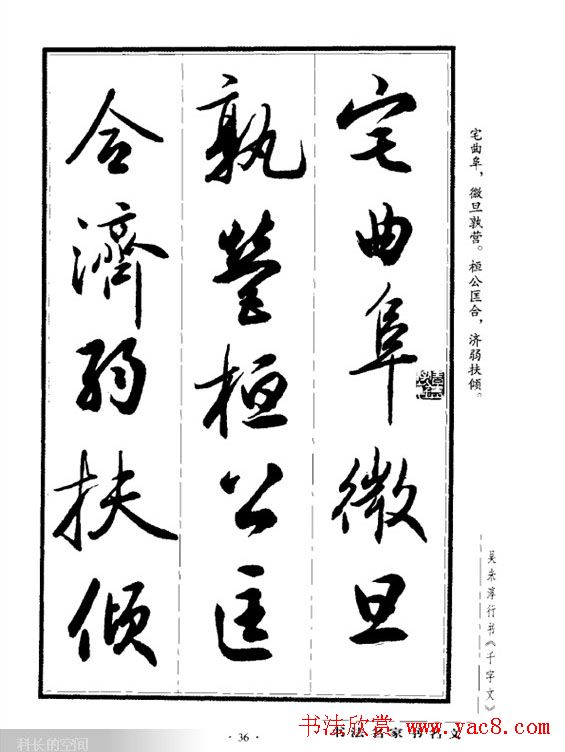 宅曲阜微旦
孰營桓公匡
合濟弱扶傾
宅曲阜，微旦孰营。桓公匡合，济弱扶倾。
吴未淳行书《千字文》
· 36 ·
书法欣赏 www.yac8.com
科长的空间